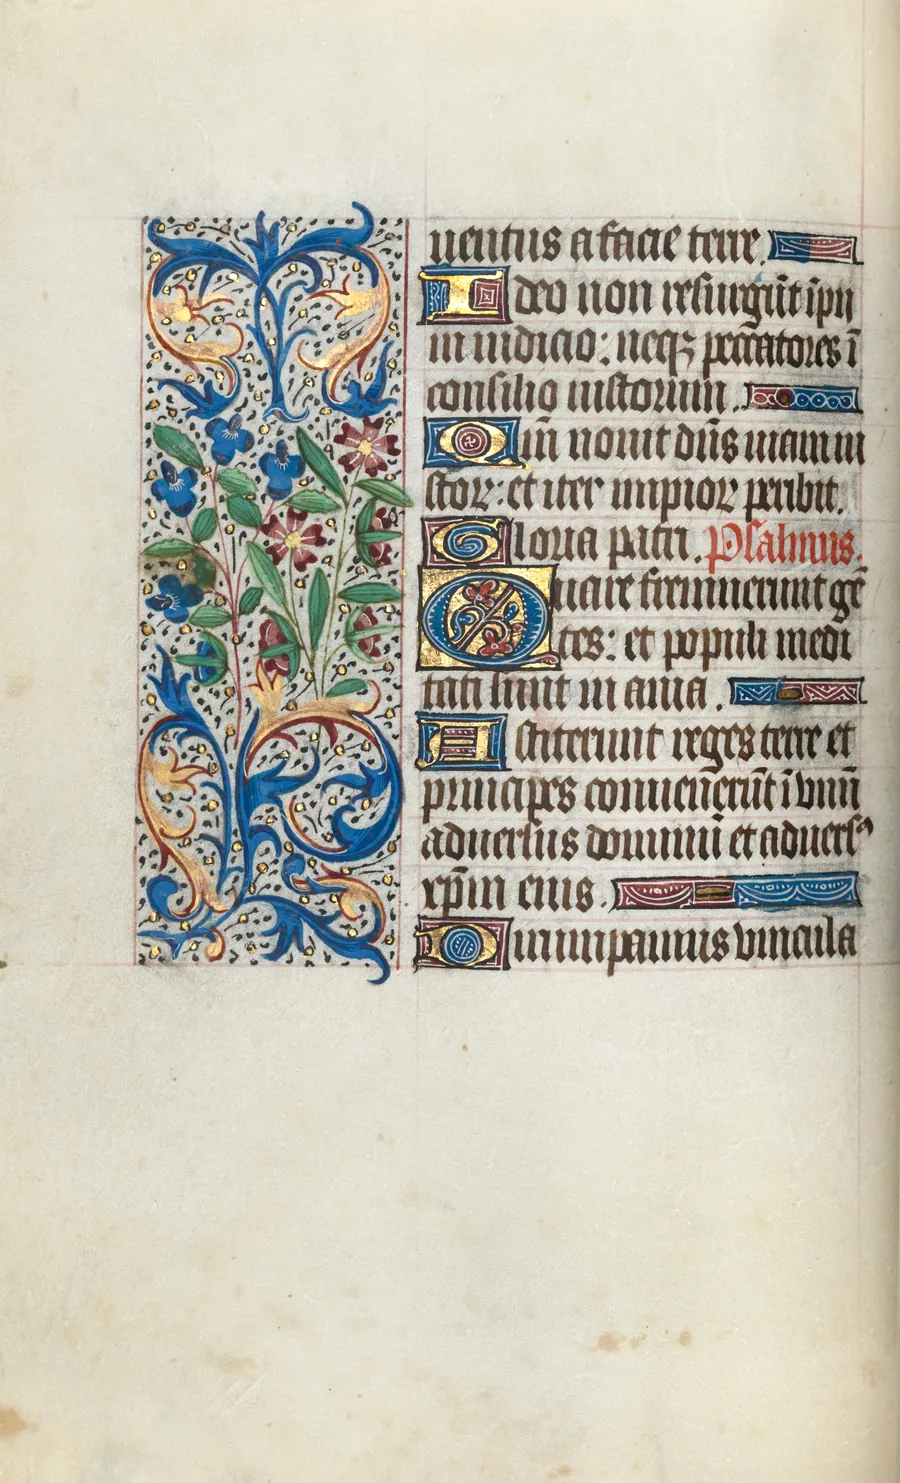 uentus a facie terre.
Ideo non resurgūt īpii
in iudicio: neqꝫ pecc̄atores ī
consilio iustorum.
Qm̄ nouit dn̄s uiam iu
stoꝝ: et iter impioꝝ peribit.
Gloria patri. Psalmus.
Quare fremuerunt gē
tes: et populi medi
tati sunt inania.
Astiterunt reges terre et
principes conuenerūt ī vnū
aduersus dominū et aduersꝰ
xp̄m eius.
Dirumpamus vincula